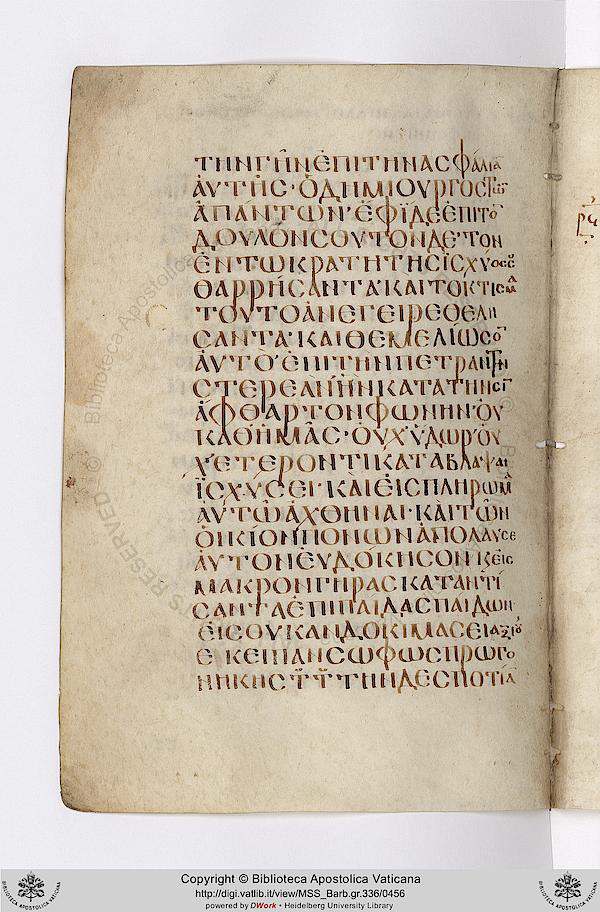 ΤΗΝ ΓΗΝ ΕΠΙ ΤΗΝ ΑΣΦΑΛΙΑ
ΑΥΤΗΣ· Ο ΔΗΜΙΟΥΡΓΟΣ ΤΩΝ
ΑΠΑΝΤΩΝ· ΕΦΙΔΕ ΕΠΙ ΤΟ
ΔΟΥΛΟΝ ΣΟΥ ΤΟΝΔΕ· ΤΟΝ
ΕΝ ΤΩ ΚΡΑΤΗ ΤΗΣ ΙΣΧΥΟΣ ΣΟΥ
ΘΑΡΡΗΣΑΝΤΑ· ΚΑΙ ΤΟ ΚΤΙΣΜΑ
ΤΟΥΤΟ ΑΝΕΓΕΙΡΕ ΘΕΛΗ
ΣΑΝΤΑ· ΚΑΙ ΘΕΜΕΛΙΩΣΟ
ΑΥΤΟ· ΕΠΙ ΤΗΝ ΠΕΤΡΑΝ ΤΗΝ
ΣΤΕΡΕΑΝ ΗΝ ΚΑΤΑ ΤΗΝ Σ
ΑΦΘΑΡΤΟΝ ΦΩΝΗΝ· ΟΥ
ΚΑΘ ΗΜΑΣ· ΟΥΧ ΥΔΩΡ· ΟΥ
Χ ΕΤΕΡΟΝ ΤΙ ΚΑΤΑΒΛΑΨΑΙ
ΙΣΧΥΣΕΙ· ΚΑΙ ΕΙΣ ΠΛΗΡΩΜ
ΑΥΤΩ ΑΧΘΗΝΑΙ· ΚΑΙ ΤΩΝ
ΟΙΚΙΟΝ ΠΟΝΩΝ ΑΠΟΛΑΥΣΕ
ΑΥΤΟΝ ΕΥΔΟΚΗΣΟΝ Κ ΕΙΣ
ΜΑΚΡΟΝ ΓΗΡΑΣ ΚΑΤΑΝΤΙ
ΣΑΝΤΑ ΕΠΙ ΠΑΙΔΑΣ ΠΑΙΔΩΝ·
ΕΙΣ ΟΥΚ ΑΝ ΔΟΚΙΜΑΣΕΙ ΑΞΙΟ
ΤΗΝ ΔΕΣΠΟΤΙΑ
Copyright © Biblioteca Apostolica Vaticana
http://digi.vatlib.it/view/MSS_Barb.gr.336/0456
powered by DWork • Heidelberg University Library